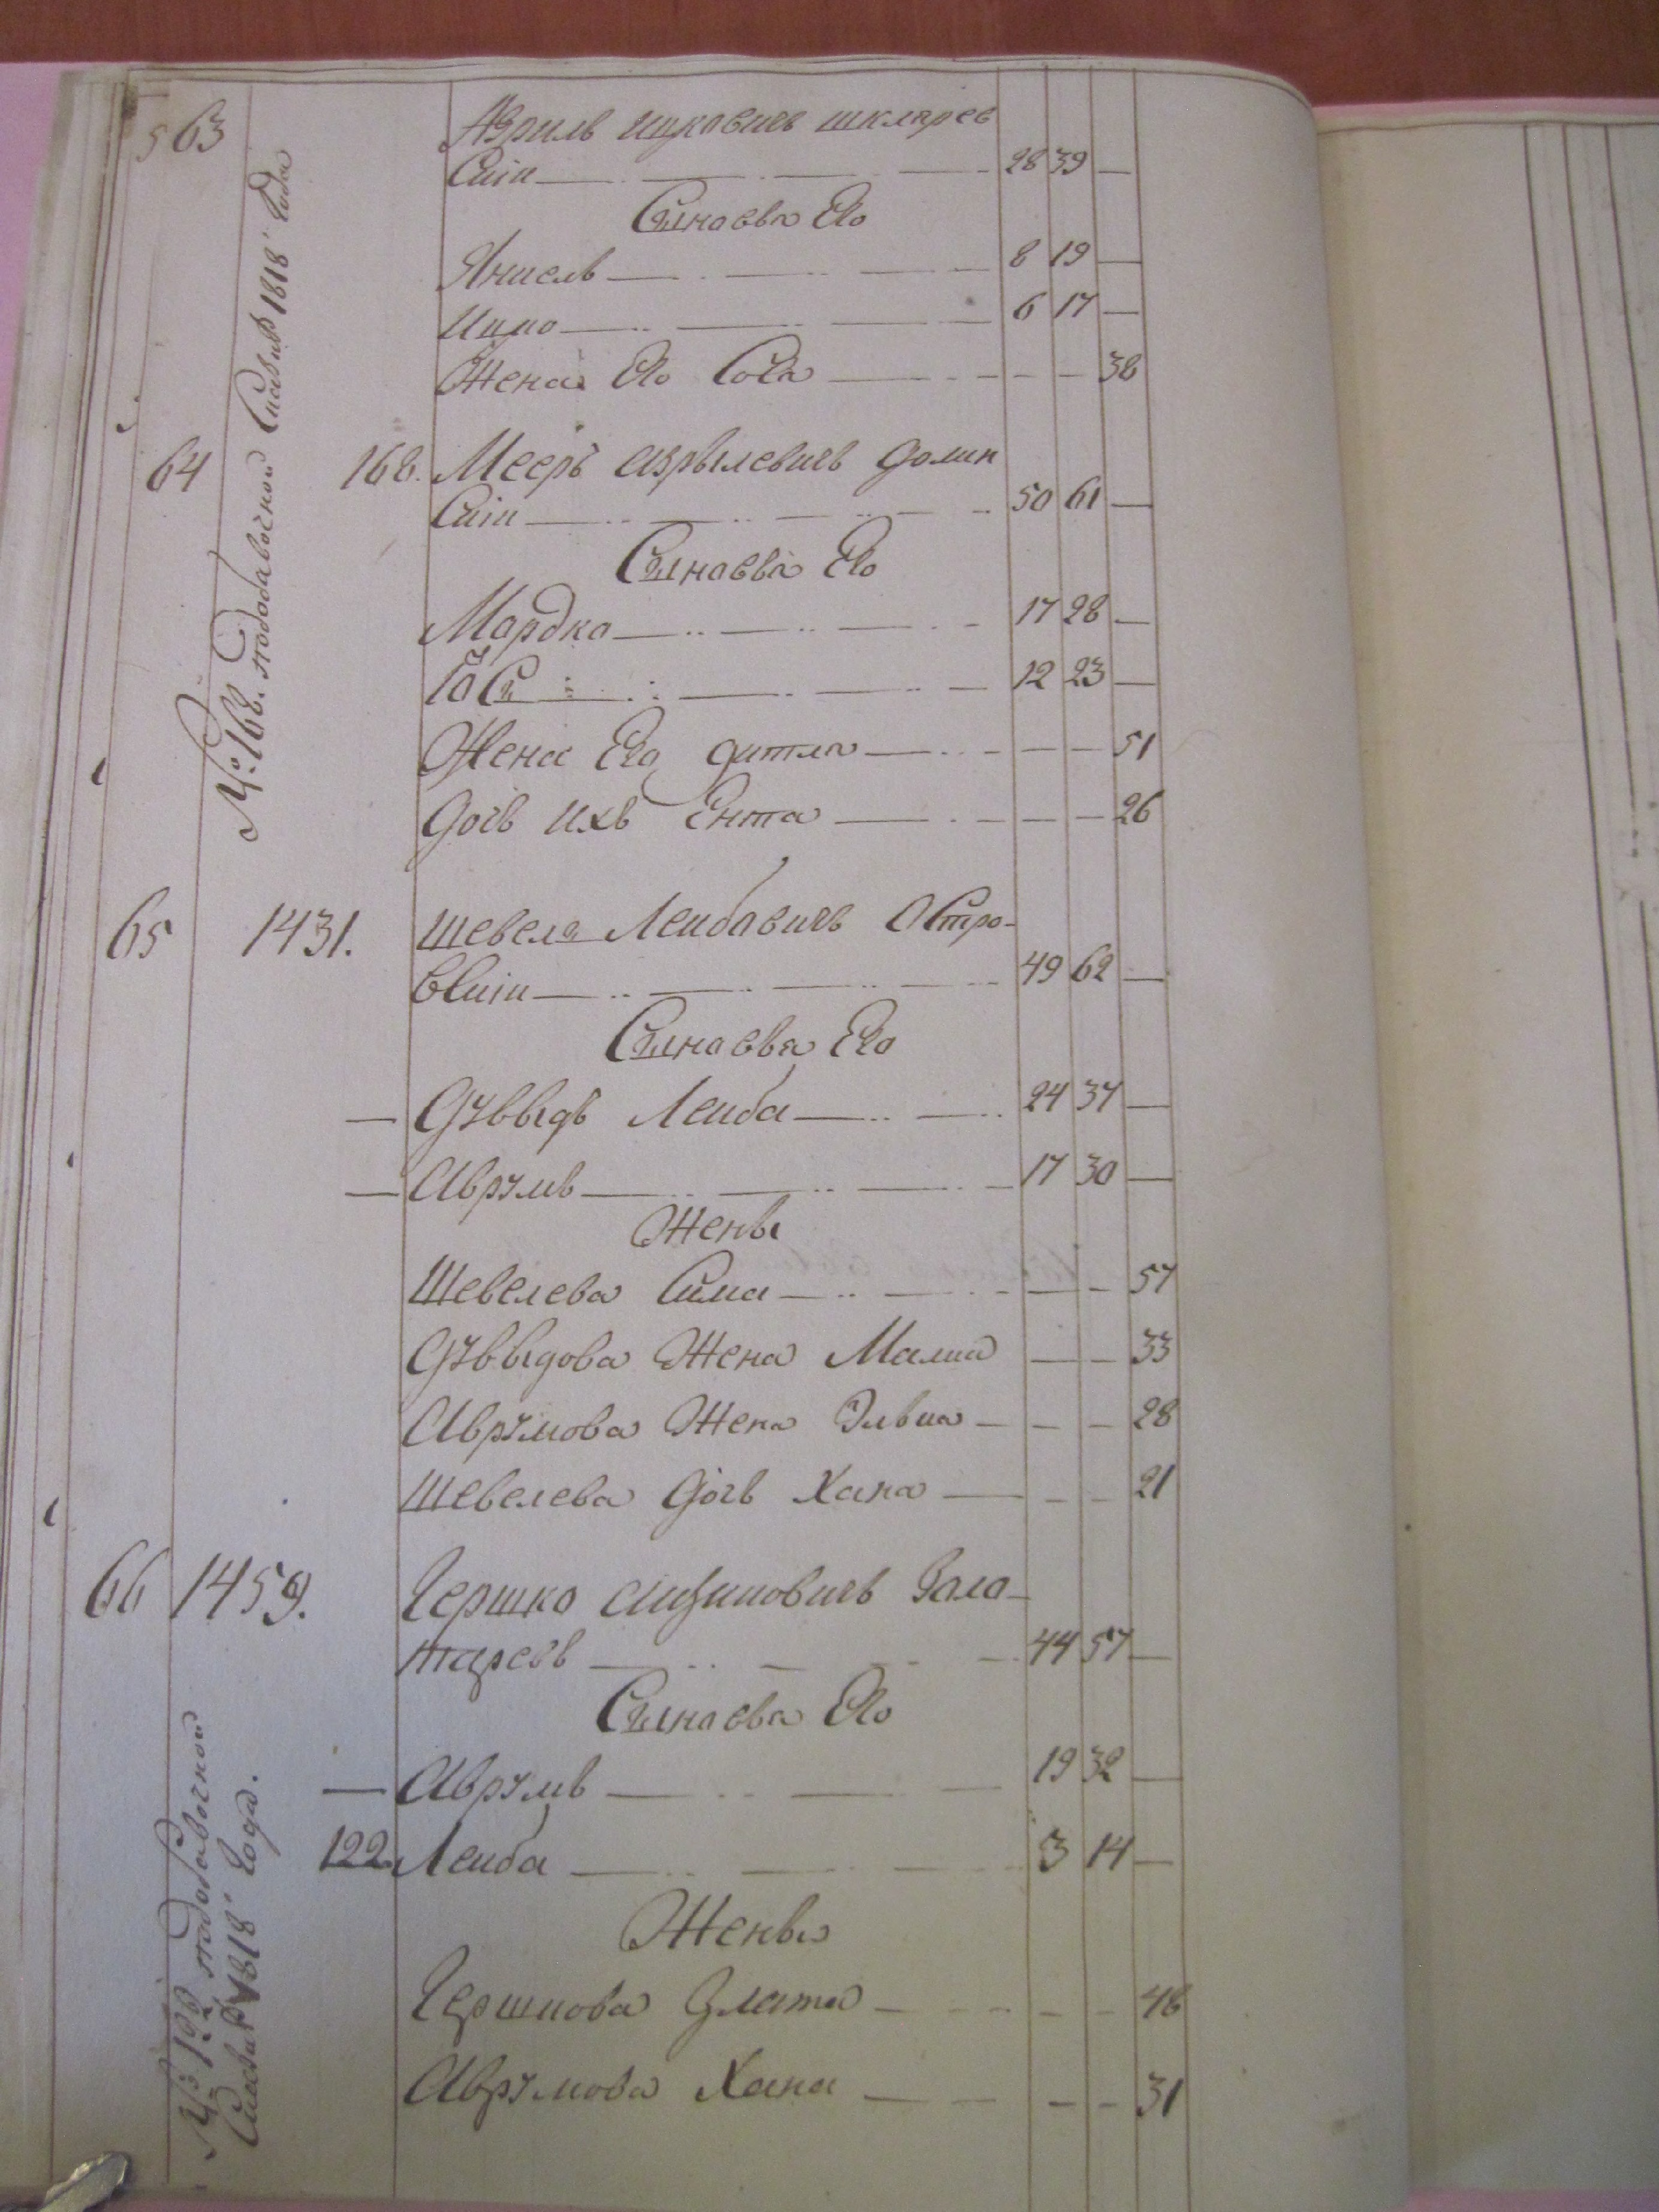 563 Азриль ицковичь шкляров
скiи 28 39 —
Сыновья Его
Янкель 8 19 —
Ицко 6 17 —
Жена Его Сося 38
64 168. Мееръ азрылевичь долин
скiи 50 61 —
Сыновья Его
Мордко 17 28 —
Юсь 12 23 —
Жена Его дитля 51
дочь ихъ Ента 26
№. 168. прибавочной Сказкѣ 1818 года
65 1431. шевель Леибовичь Остро-
вскiи 49 62 —
Сыновья Его
— дувыдъ Леиба 24 37 —
— Аврумъ 17 30 —
Жены
Шевелева Сима 57
дувыдова Жена Малка 33
Аврумова Жена Элька 28
Шевелева дочь Хана 21
66 1459. Гершко Зола-
таревъ 44 57 —
Сыновья Его
— Аврумъ 19 32 —
122. Леиба 3 14 —
Жены
Гершкова Злата 48
Аврумова Хана 31
№ 122 прибавочной
Сказкѣ 1818 года.